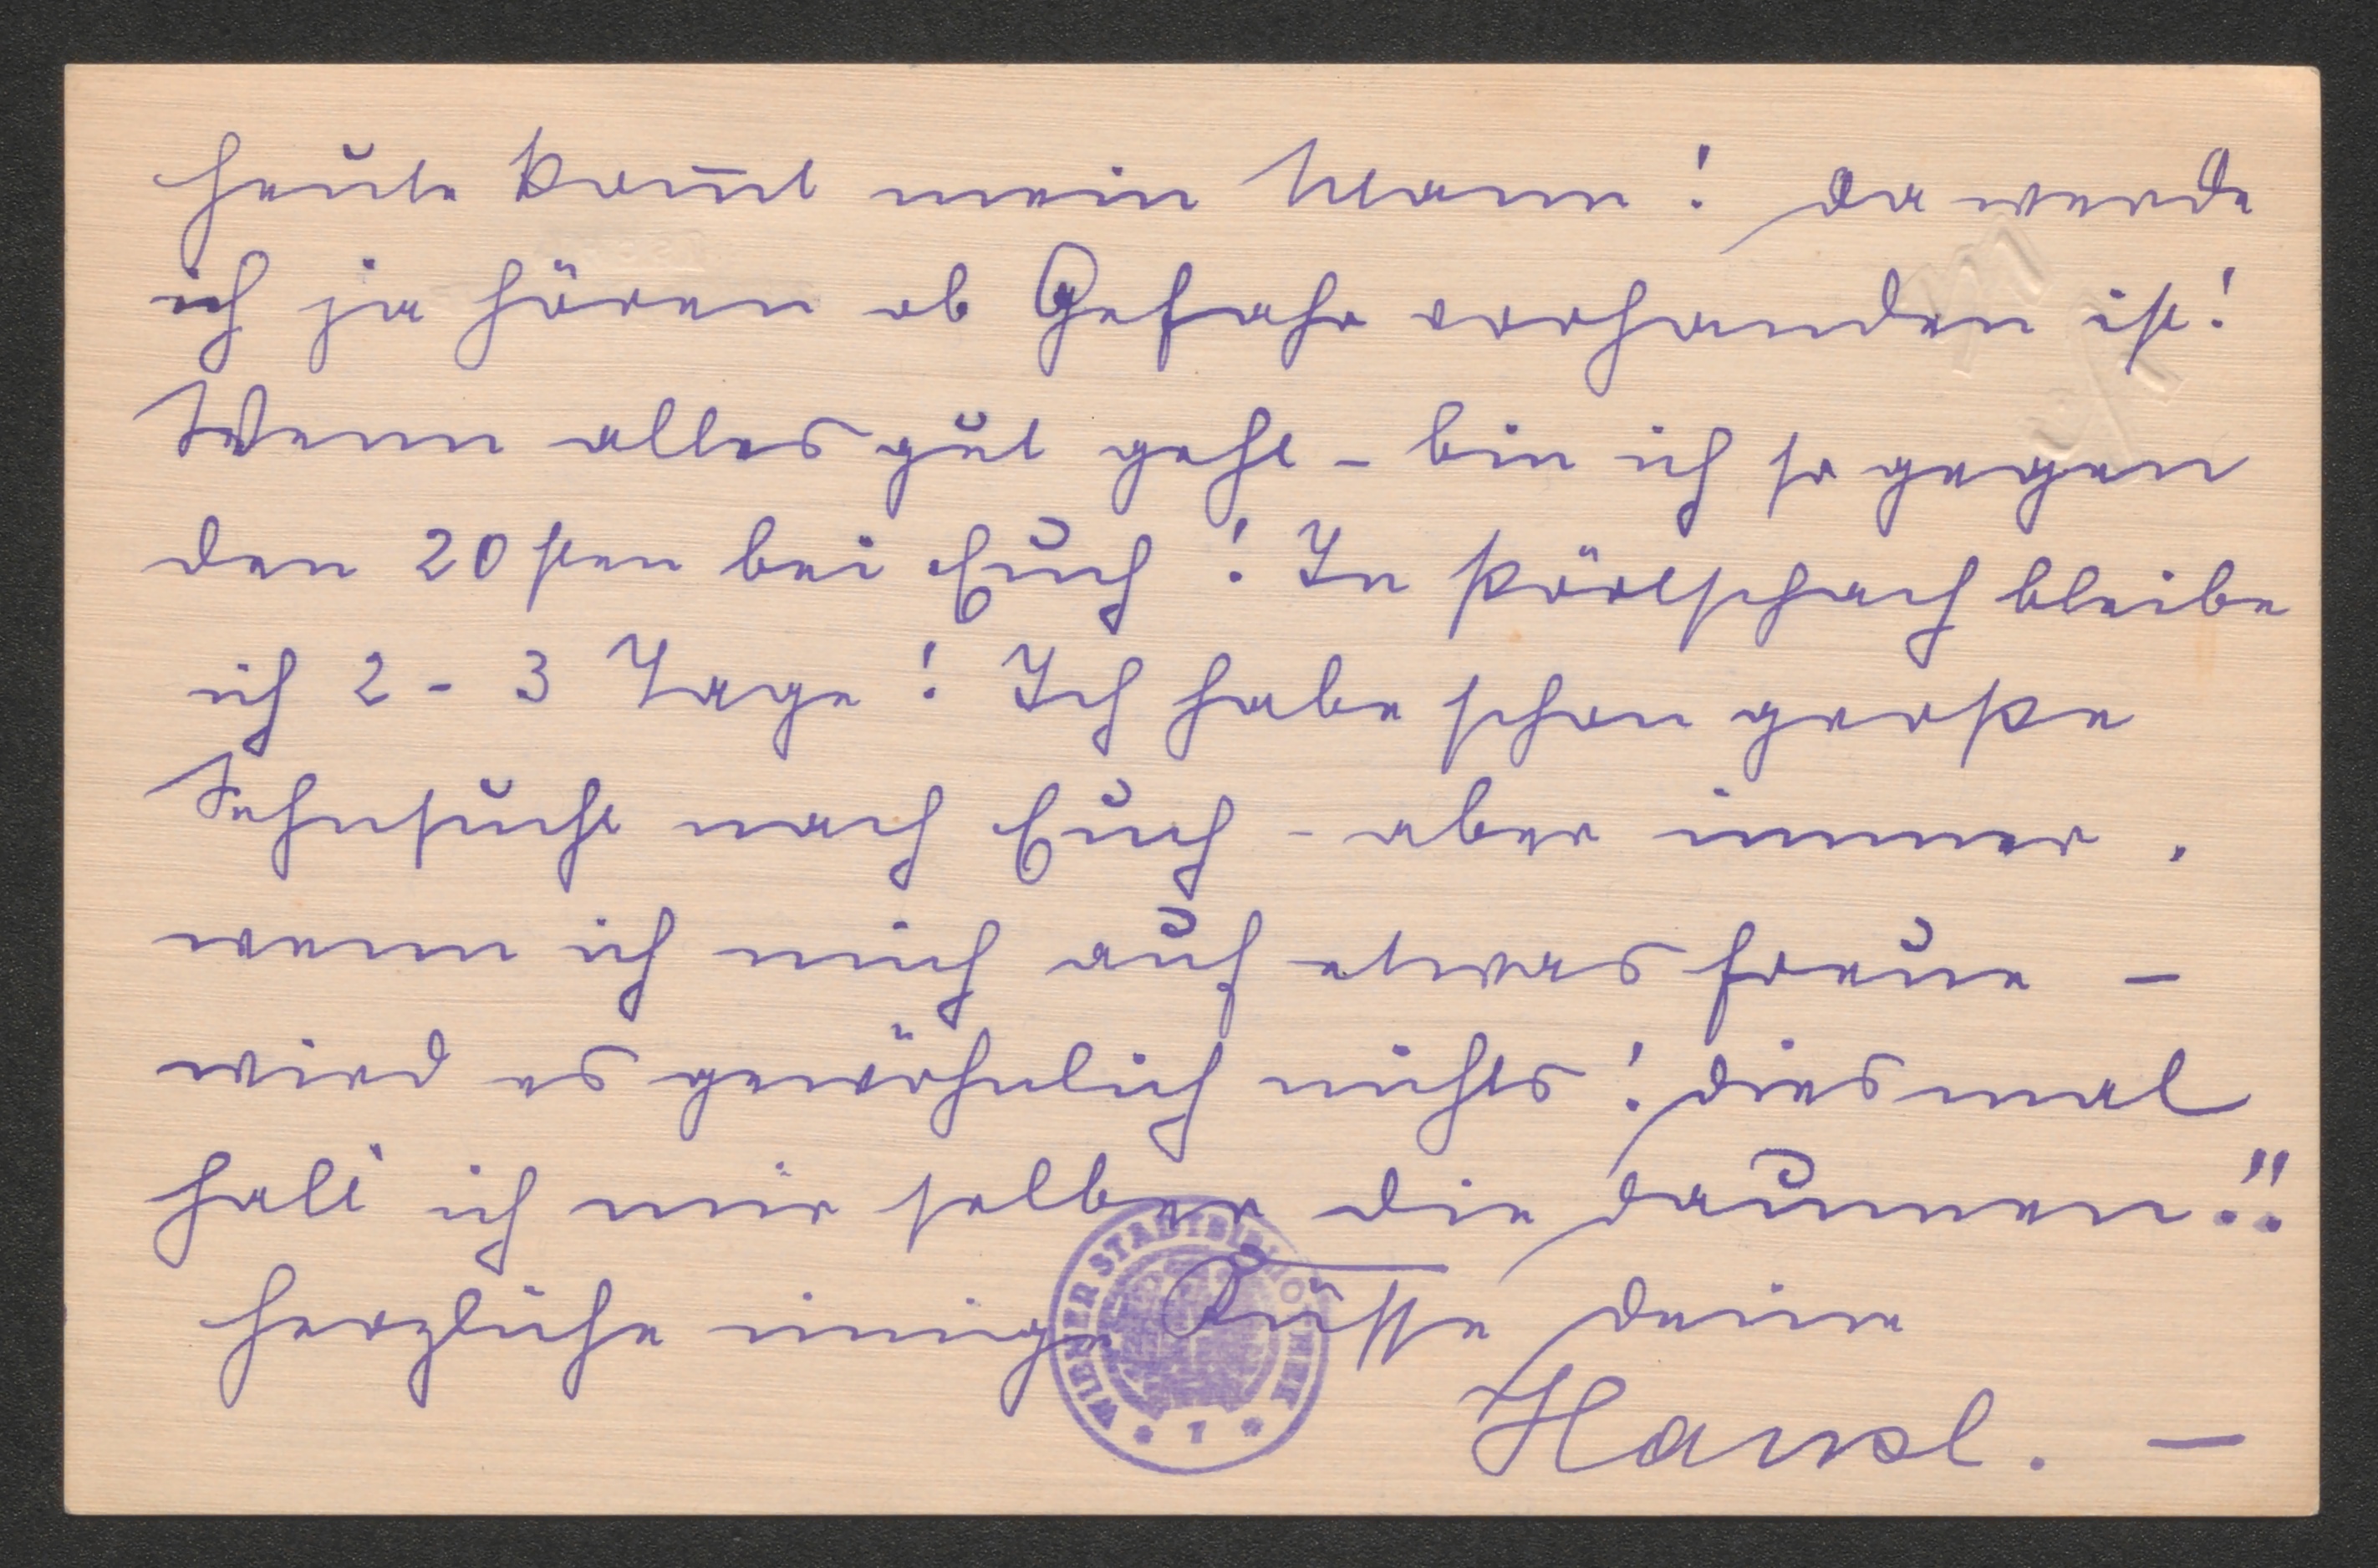 heute kom̅t mein Mann! Da werde
ich ja hören ob Gefahr vorhanden ist!
Wenn alles gut geht – bin ich so gegen
den 20sten bei Euch! In Pörtschach bleibe
ich 2 - 3 Tage! Ich habe schon große
Sehnsucht nach Euch - aber immer,
wenn ich mich auf etwas freue –
wird es gewöhnlich nichts! Diesmal
halt' ich mir selber die Daumen!!
Herzliche innige Küsse Deine
Hansl. –
WIENER STADTBIBLIOTHEK
* 1 *